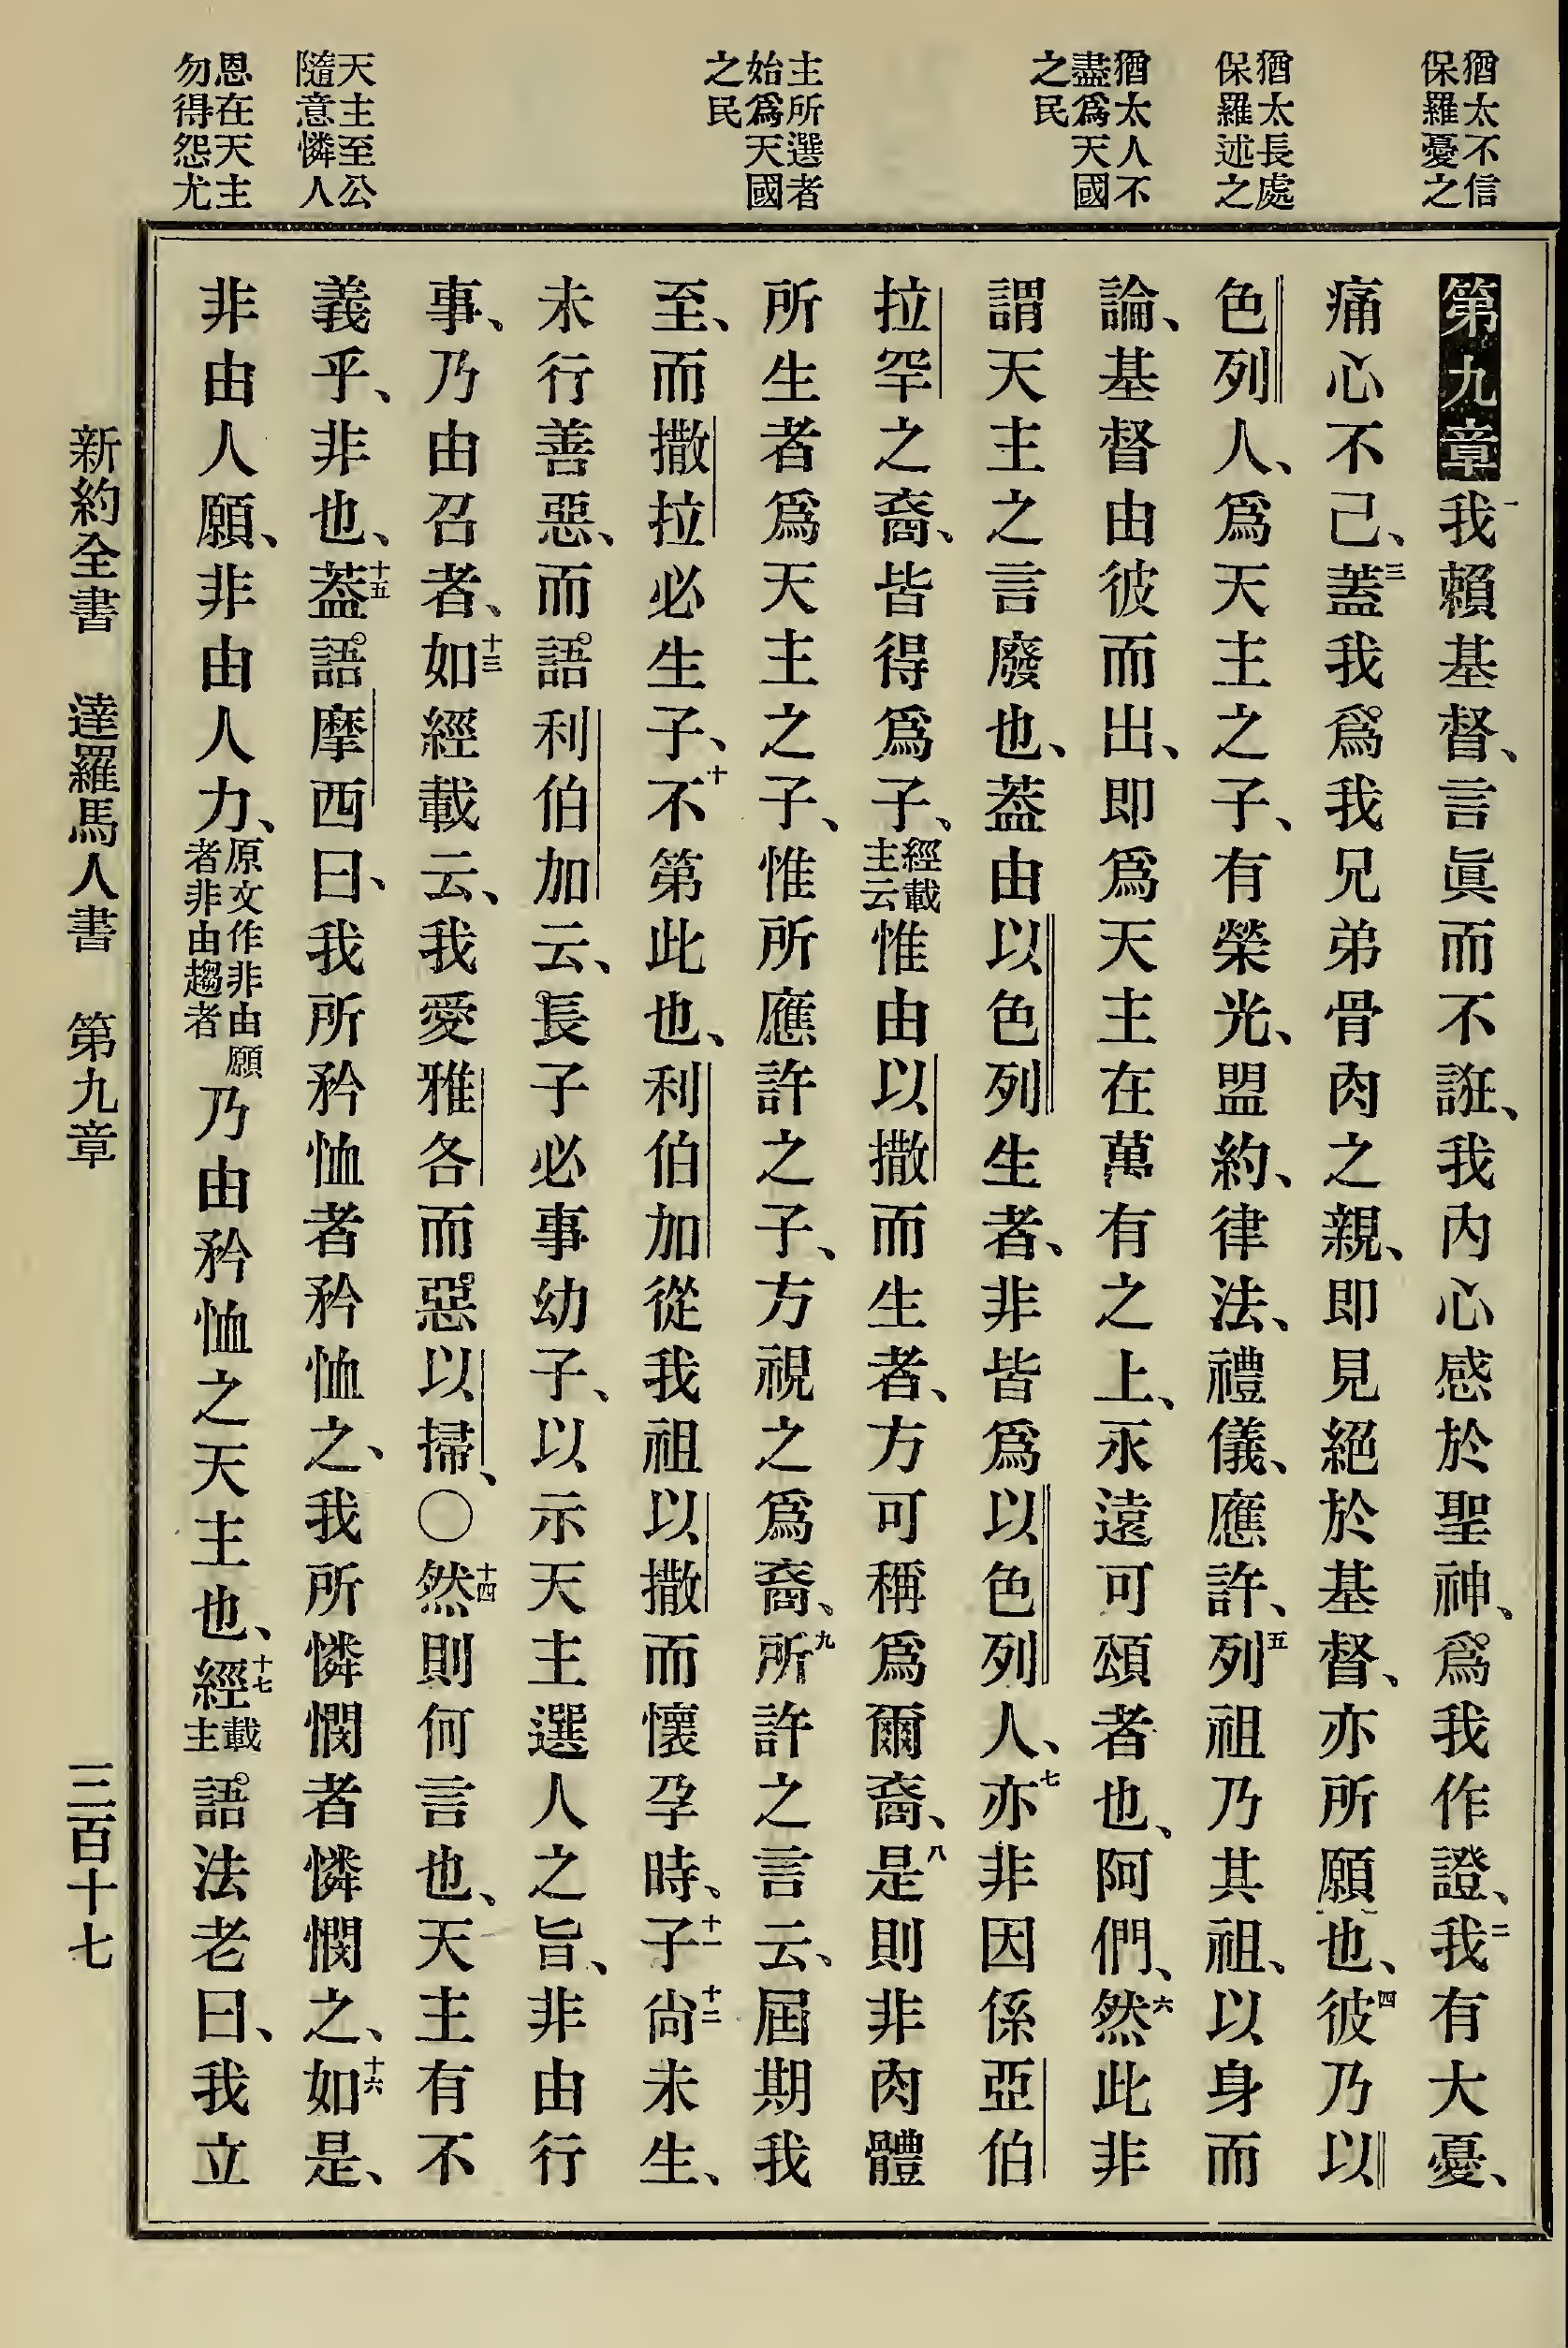 猶太不信
保羅憂之
猶太長處
保羅述之
猶太人不
盡爲天國
之民
主所選者
始爲天國
之民
天主至公
隨意憐人
恩在天主
勿得怨尤
第九章一我賴基督、言眞而不誑、我內心感於聖神、爲我作證、二我有大憂、
痛心不已、三蓋我爲我兄弟骨肉之親、卽見絕於基督、亦所願也、四彼乃以
色列人、爲天主之子、有榮光、盟約、律法、禮儀、應許、五列祖乃其祖、以身而
論、基督由彼而出、卽爲天主在萬有之上、永遠可頌者也、阿們、六然此非
謂天主之言廢也、蓋由以色列生者、非皆爲以色列人、七亦非因係亞伯
拉罕之裔、皆得爲子、經載主云惟由以撒而生者、方可稱爲爾裔、八是則非肉體
所生者爲天主之子、惟所應許之子、方視之爲裔、九所許之言云、屆期我
至、而撒拉必生子、十不第此也、利伯加從我祖以撒而懷孕時、十一子十二尙未生、
未行善惡、而語利伯加云、長子必事幼子、以示天主選人之旨、非由行
事、乃由召者、十三如經載云、我愛雅各而惡以掃、〇十四然則何言也、天主有不
義乎、非也、十五蓋語摩西曰、我所矜恤者矜恤之、我所憐憫者憐憫之、十六如是、
非由人願、非由人力、原文作非由願者非由趨者乃由矜恤之天主也、十七經載主語法老曰、我立
新約全書　達羅馬人書　第九章　三百十七